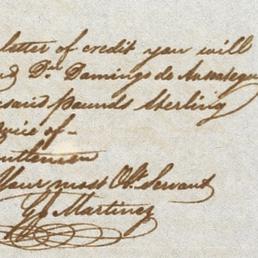 letter of credit you will
Dn. Domingo de
pounds Sterling
of-
Gentlemen
Your most Obt. Servant
Martinez